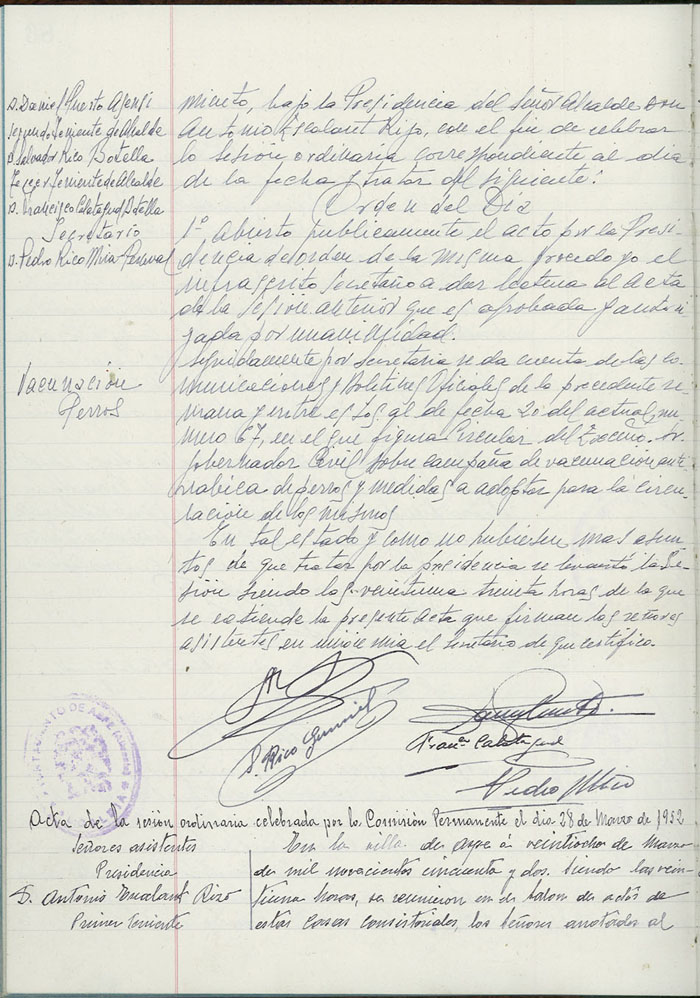 D. Daniel Puerto Asensi
Segundo Teniente de Alcalde
D. Salvador Rico Botella
Tercer Teniente de Alcalde
D. Francisco Calatayud Botella
Secretario
D. Pedro Rico Mira-Perceval
miento, bajo la Presidencia del Señor Alcalde Don
Antonio Escolant Rizo, con el fin de celebrar
la sesión ordinaria correspondiente al dia
de la fecha y tratar del siguiente:
Orden del Dia
1º Abierto publicamente el acto por la Presi-
dencia de orden de la misma procedo yo el
infrascrito Secretario a dar lectura al Acta
de la Sesión anterior que es aprobada y autori
zada por unanimidad.
Vacunación
Perros
Seguidamente por secretaria se da cuenta de las co-
municaciones y Boletines Oficiales de la precedente se-
mana y entre estos al de fecha 20 del actual, nu
mero 67, en el que figura Circular del Excmo. Sr.
Gobernador Civil sobre campaña de vacunación anti
rabica de perros y medidas a adoptar para la circu-
lación de los mismos
En tal estado y como no hubiesen mas asun-
tos de que tratar por la presidencia se levantó la Se-
sión siendo las veintiuna treinta horas de la que
se extiende la presente Acta que firman los señores
asistentes en unión mia el Secretario de que certifico.
S. Rico
Franco Calatayud
Pedro Rico
AYUNTAMIENTO DE ASPE (Alicante)
Acta de la sesión ordinaria celebrada por la Comisión Permanente el dia 28 de Marzo de 1952
Señores asistentes
Presidencia
D. Antonio Escolant Rizo
Primer Teniente
En la villa de Aspe a veintiocho de Marzo
de mil novecientos cincuenta y dos. Siendo las vein-
tiuna horas, se reunieron en el salon de actos de
estas Casas Consistoriales, los Señores anotados al